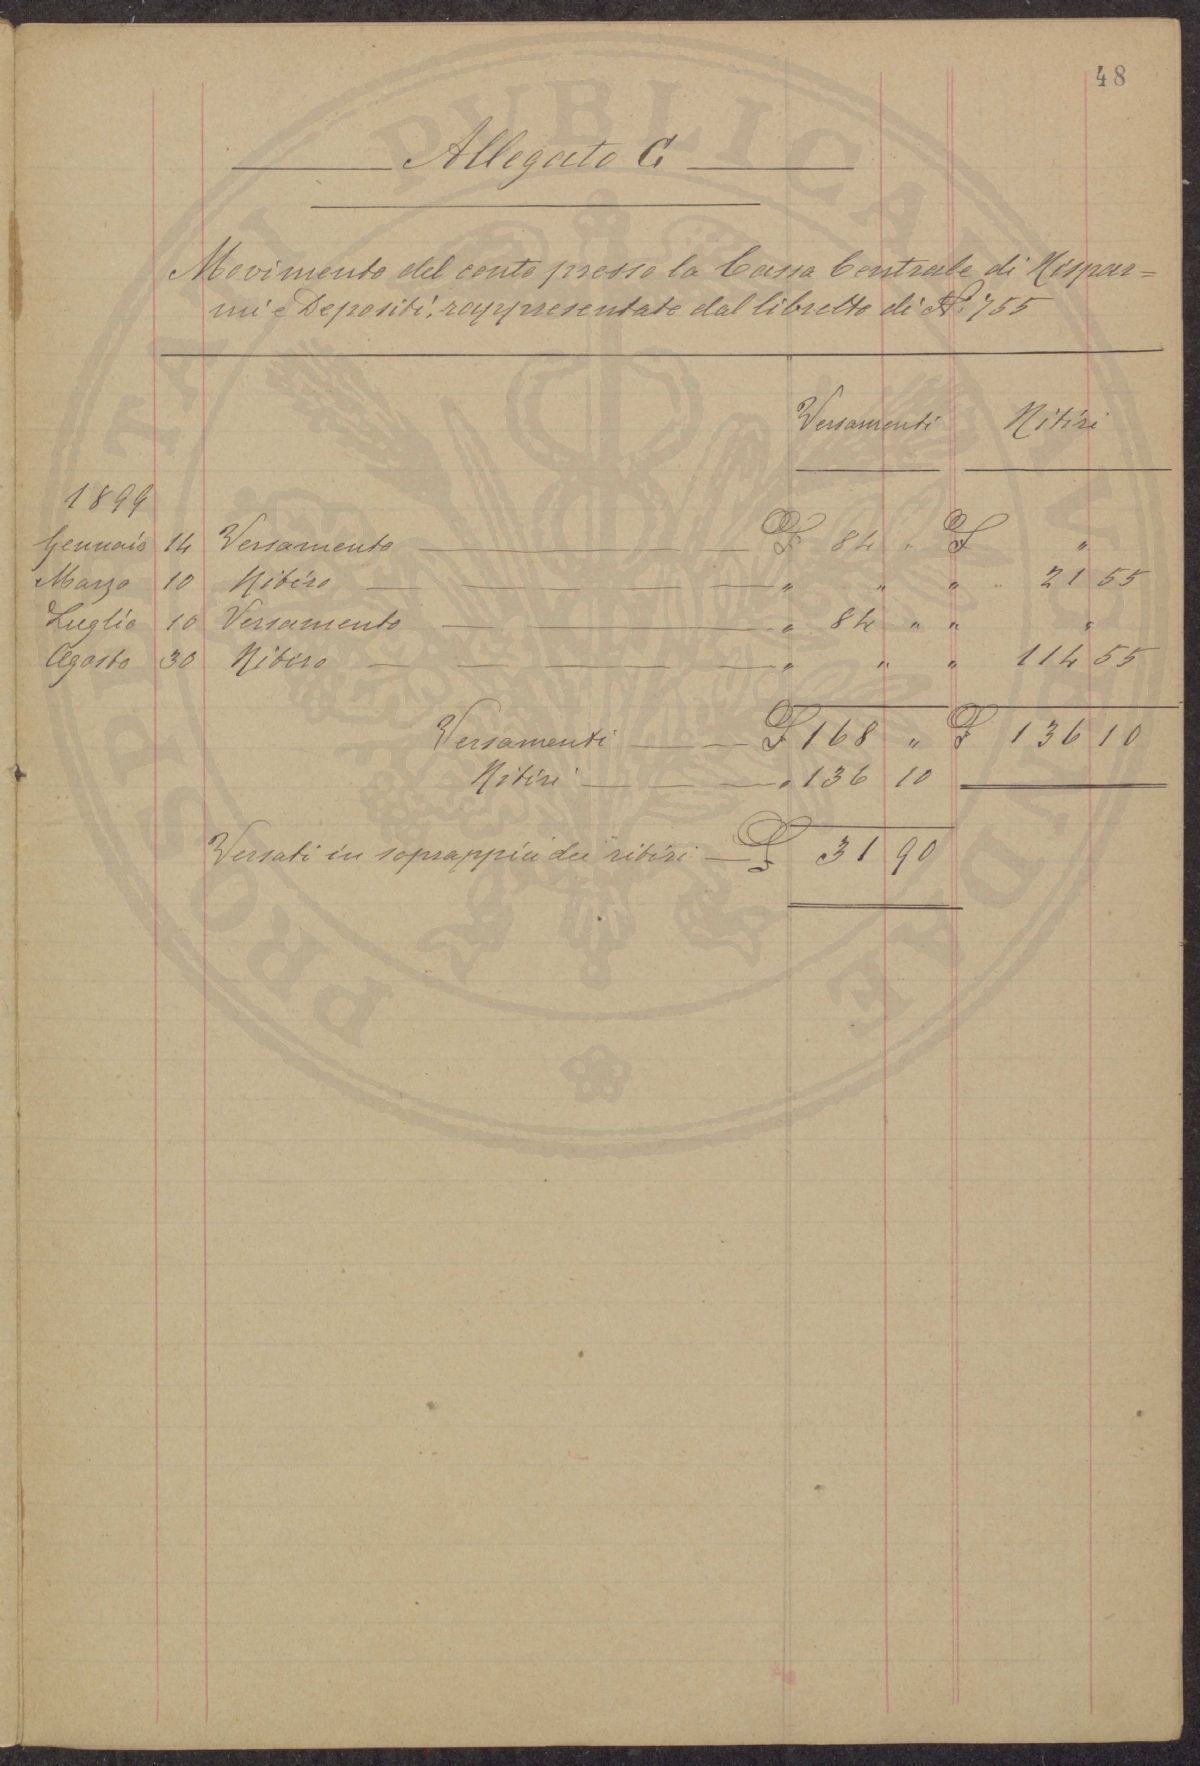 48
Allegato C
Movimento del conto presso la Cassa Centrale di Rispar=
mi e Depositi, rappresentate dal libretto di N.° 755
Versamenti Ritiri
1899
Gennaio 14 Versamento £ 84 " £ "
Marzo 10 Ritiro " " " 21 55
Luglio 10 Versamento " 84 " " "
Agosto 30 Ritiro " " " 114 55
Versamenti £ 168 " £ 136 10
Ritiri " 136 10
Versati in soprappiù dei ritiri £ 31 90